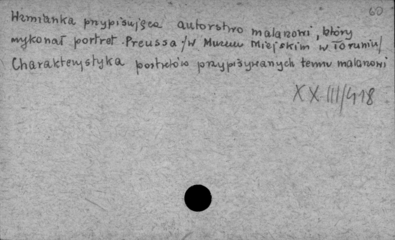 60
Wzmianka przypisująca autorstwo malarzowi, który
wykonał portret Preussa /w Muzeum Miejskim w Toruniu/
Charakterystyka portretów przypisywanych temu malarzowi
XXIII/418